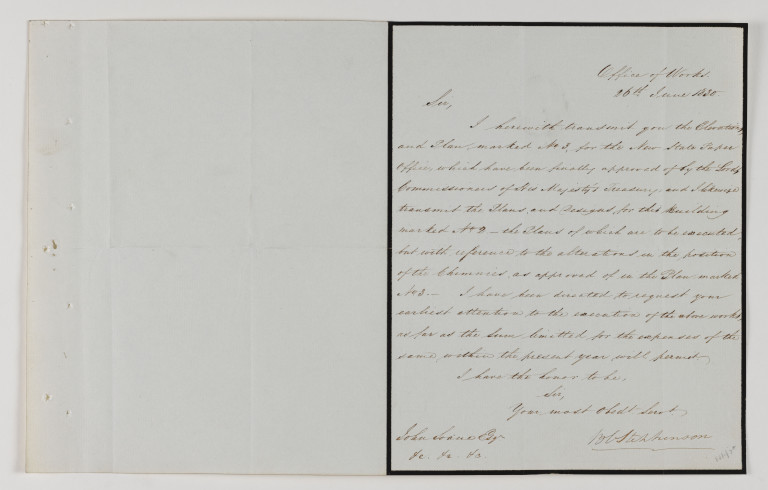 Office of Works.
26th June 1830
Sir,
I herewith transmit you the Elevations,
and Plan, marked No 3, for the New State Paper
Office, which have been finally approved of by the Lords
Commissioners of His Majesty's Treasury and I likewise
transmit the Plans, and Designs, for this Building
marked No 2 – the Plans of which are to be executed,
but with reference to the alterations in the position
of the Chimnies, as approved of in the Plan marked
No 3. – I have been directed to request your
earliest attention to the execution of the above works,
as far as the Sum limitted for the expenses of the
same, within the present year, will permit,
I have the honor to be,
Sir,
Your most Obedt Servt
B C Stephenson
John Soane Esqr
&c. &c. &c.